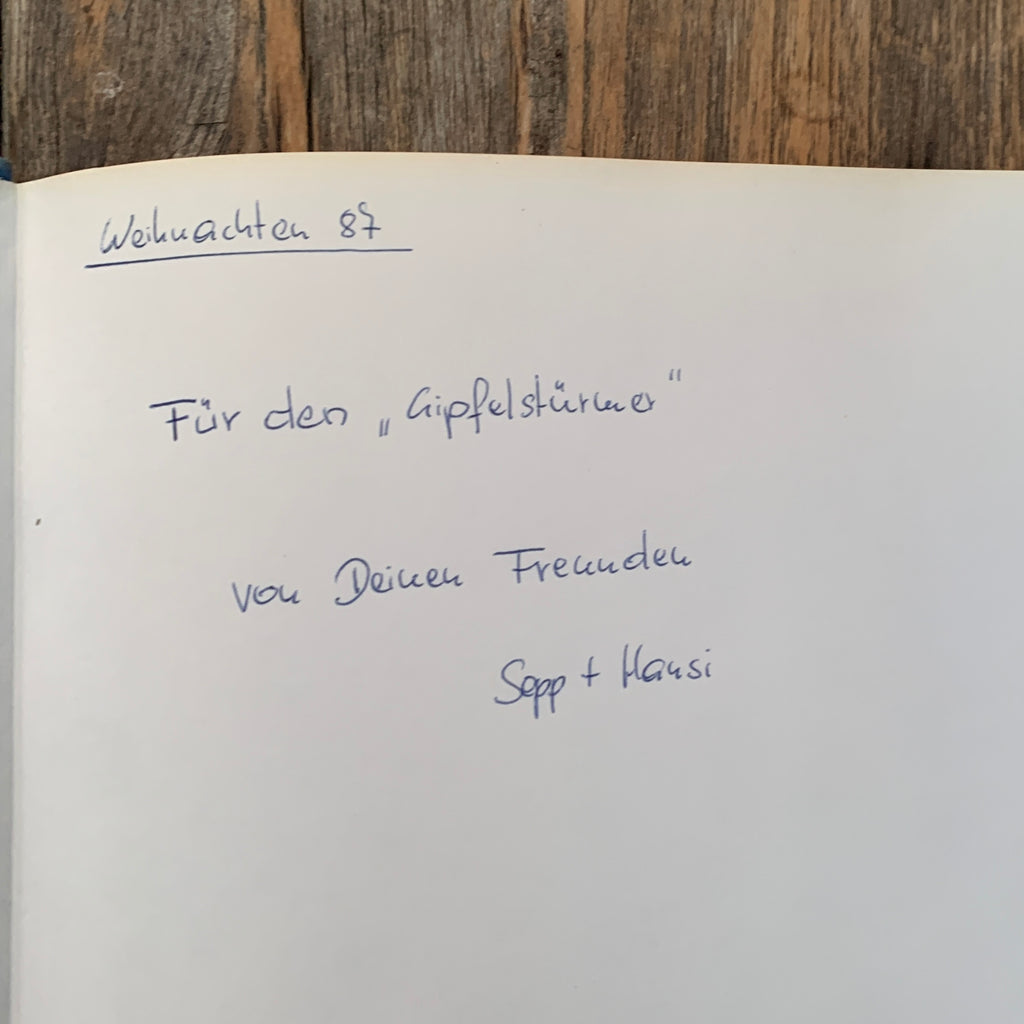 Weihnachten 87
Für den „Gipfelstürmer“
von Deinen Freunden
Sepp + Hansi